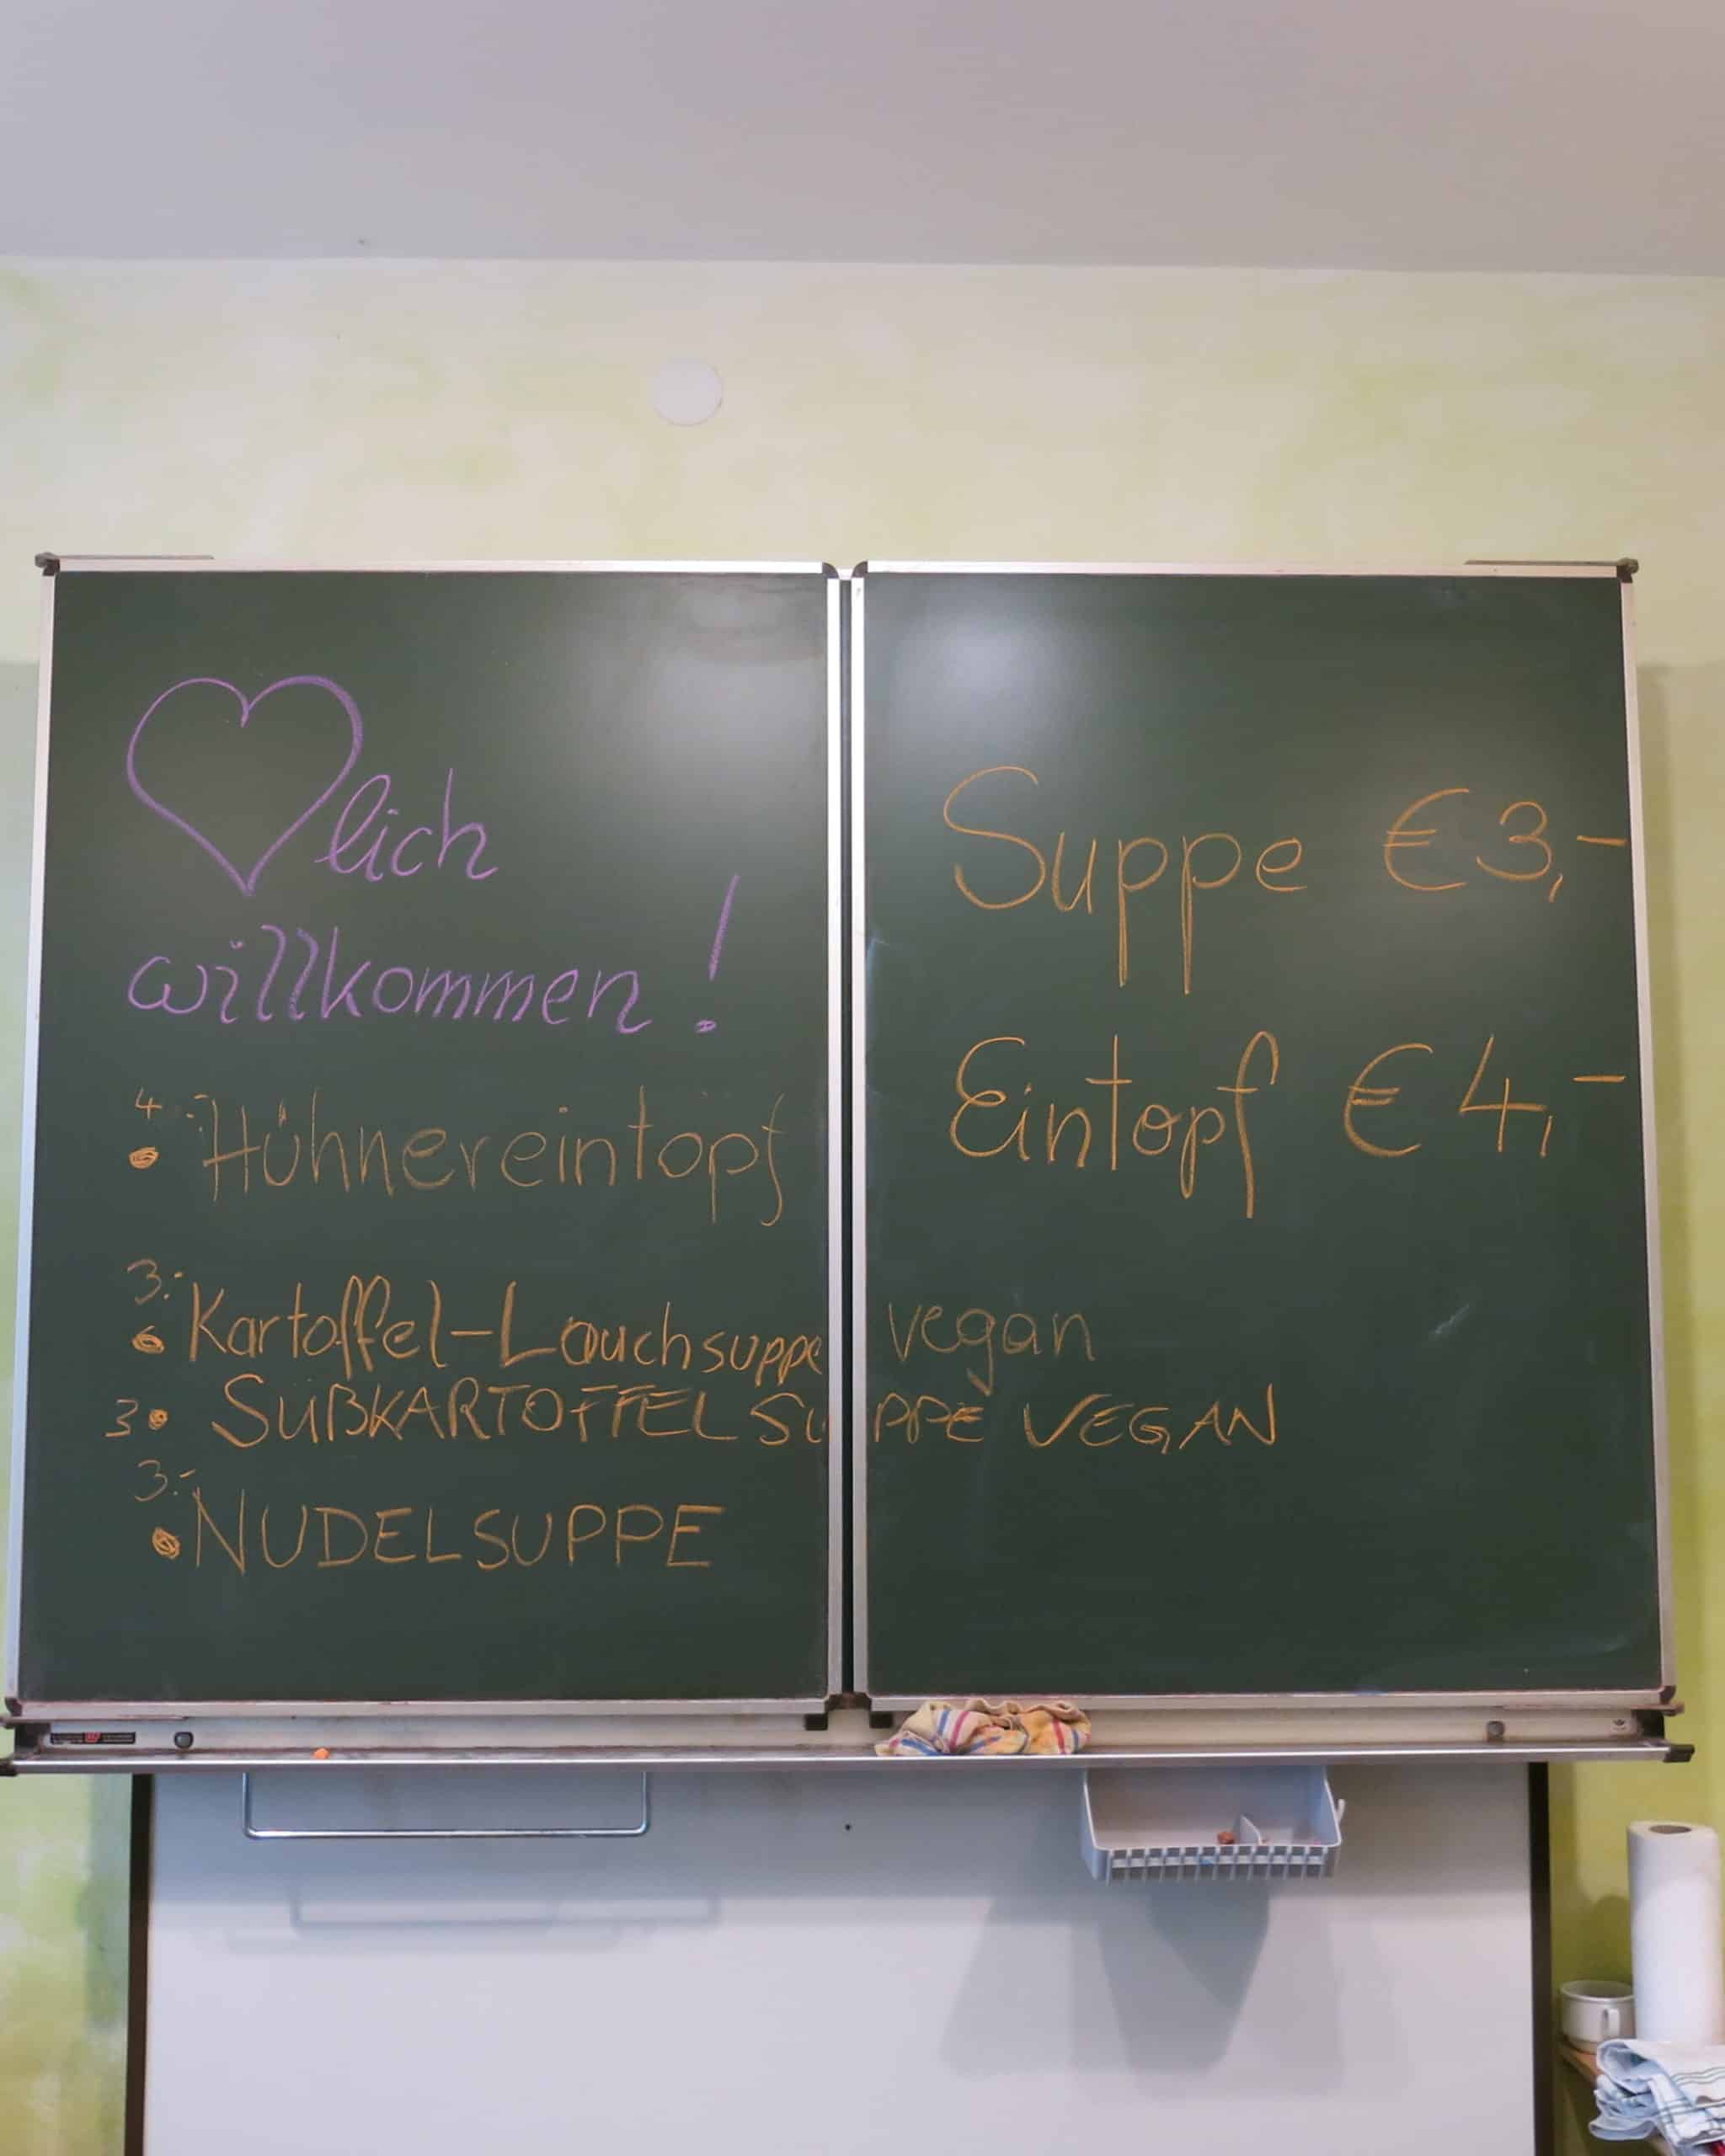 ♡lich
willkommen!
4.-
• Hühnereintopf
3.-
• Kartoffel-Lauchsuppe vegan
3 • SÜßKARTOFFEL SUPPE VEGAN
3.-
• NUDELSUPPE
Suppe € 3,-
Eintopf € 4,-